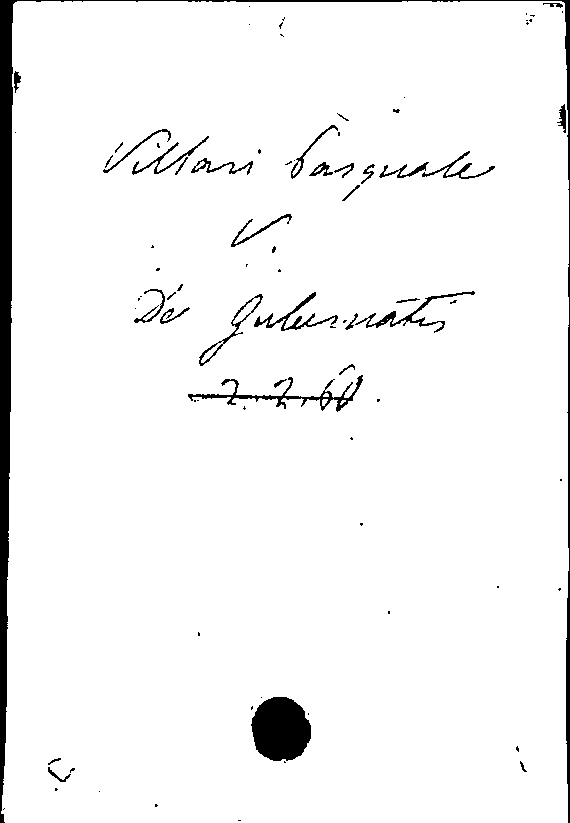 Villari Pasquale
V.
De Gubernatis
2.2.60